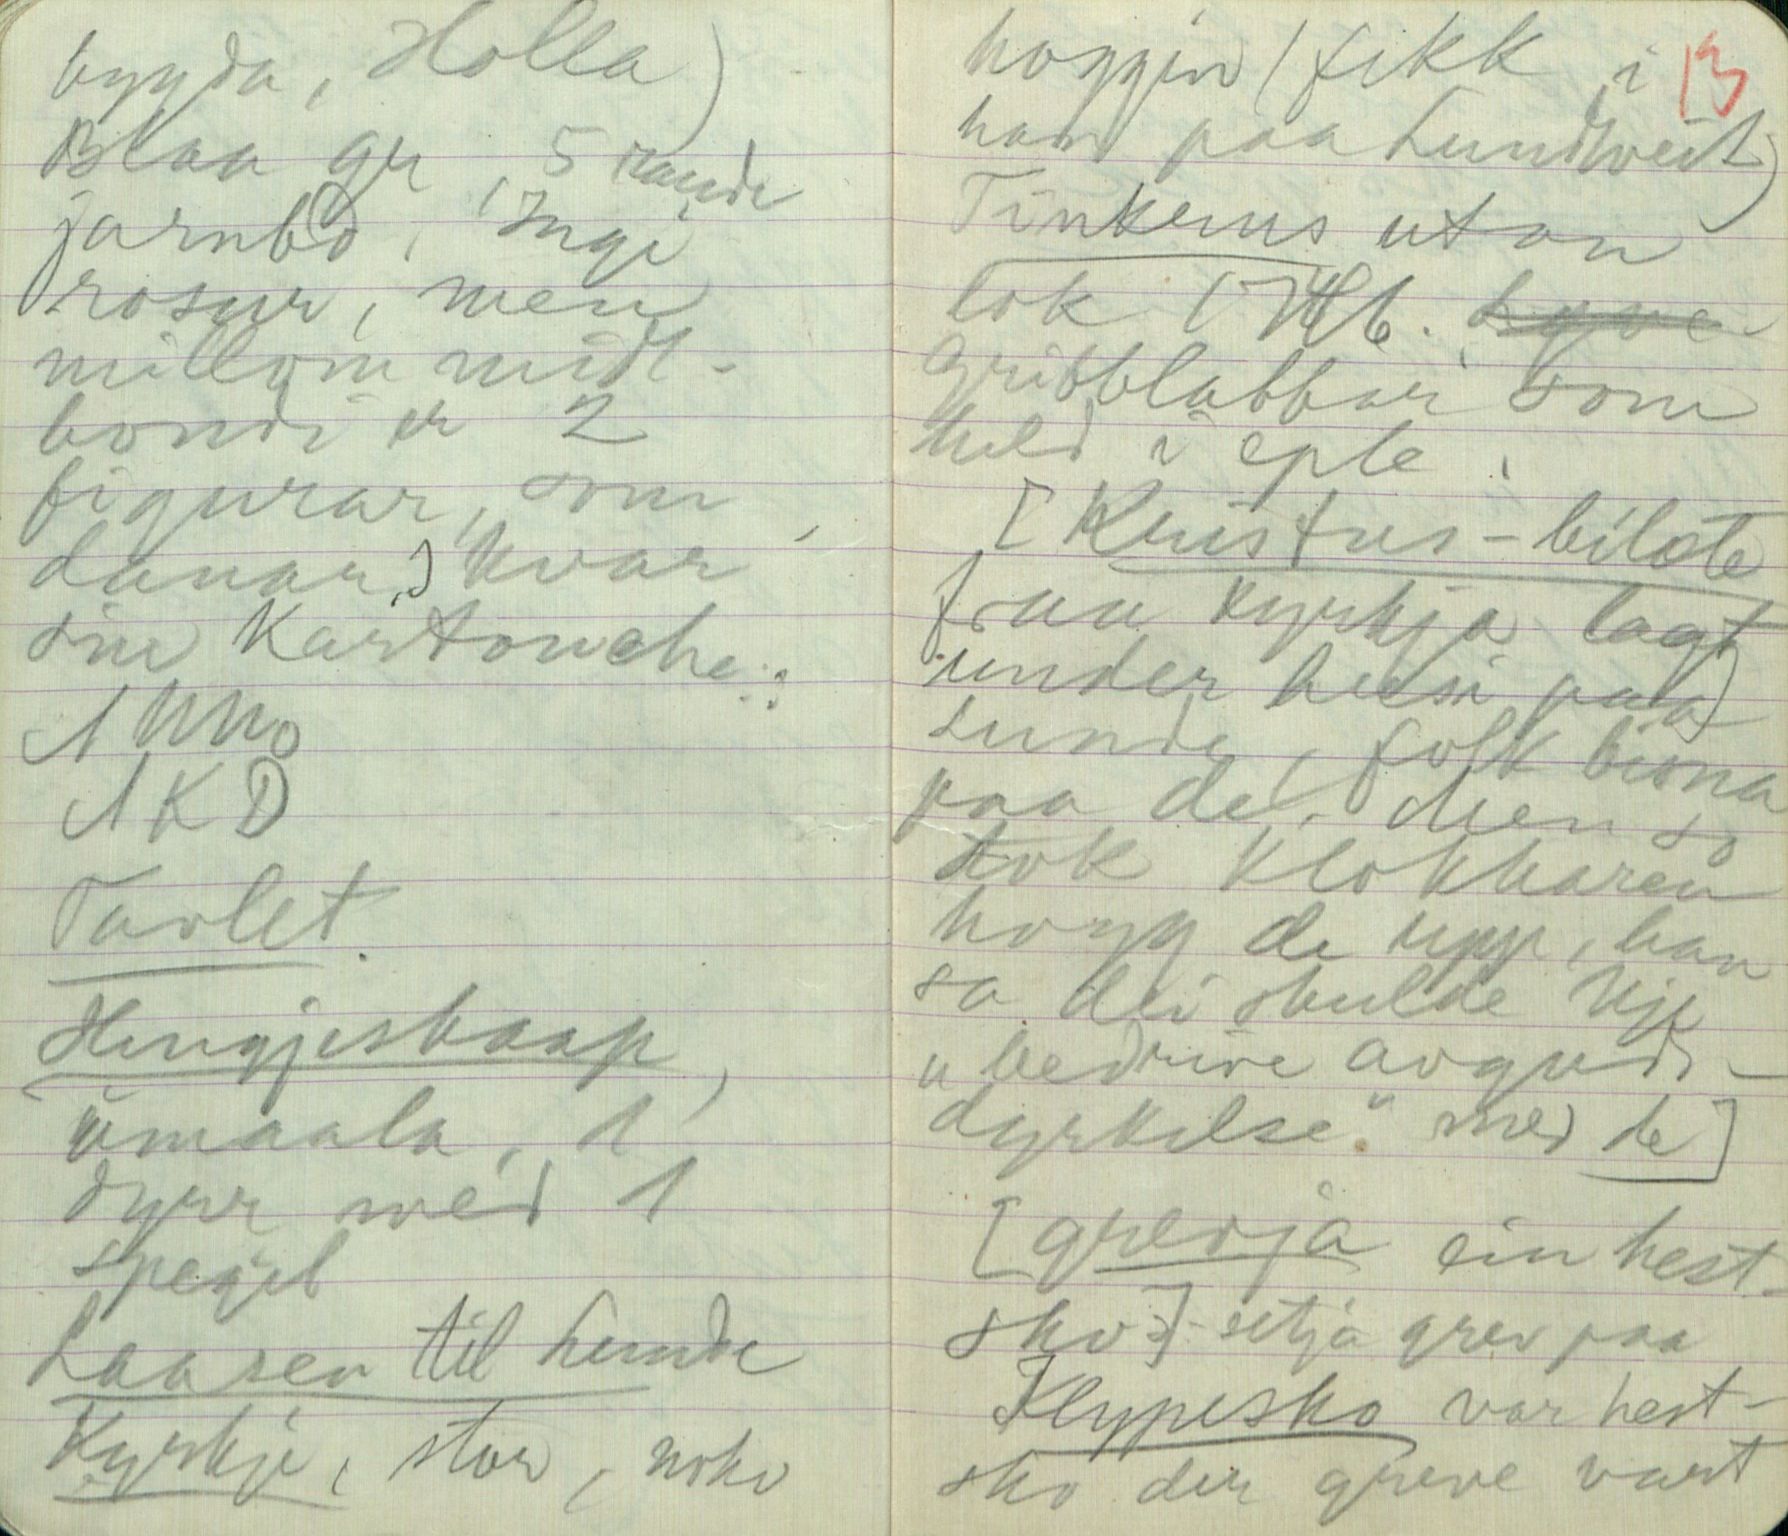 bygda, Holla)
Blaa gr, 5 raude
jarnbd, Ingi
rosur, men
millom midt-
bondi er 2
figurar, som
danar kvar
sin Kartouche:
Anno
AKD
Tavlet.
Hengjeskaap,
umaala, 1
dyrr med 1
spegel
Laasen til Lunde
Kyrkje, stor, noko
13
hoggin (fekk i
han paa Lundtveit)
Tinkrus utan
lok (Hb. Lyve-
gribblabbar som
held i eple.
[Kristus-bilæte
fraa kyrkja lagt
under husi paa
Lunde, folk
paa de. Men so
tok klokkaren
hogg de upp, han
sa dei skulde kje
"bedrive avguds-
dyrkelse" med de]
[grevja ein hest-
sko] setja grev paa
Klypesko var hest-
sko der greve vart